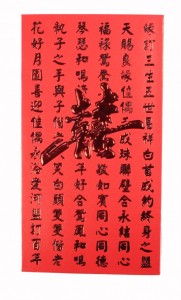 緣訂三生五世昌祥白首成約終身之盟
天賜良緣佳偶成珠聯璧合永結同心
福祿鴛鴦如賓同心同德
琴瑟和鳴年好合鸞鳳和鳴
執子之手與子偕笑白頭雙雙偕老
花好月圓喜迎佳偶永浴愛河盟訂百年